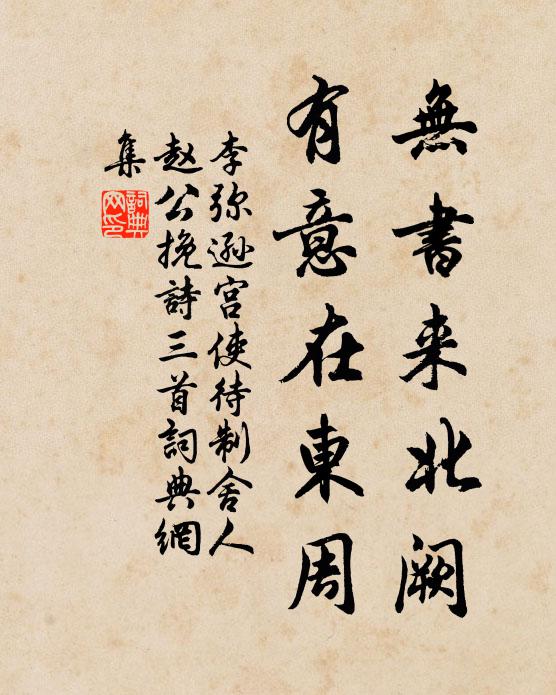 無書来北阙
有意在東周
李弥遜宫使待制舍人
赵公挽詩三首詞典網
集
詞典网印